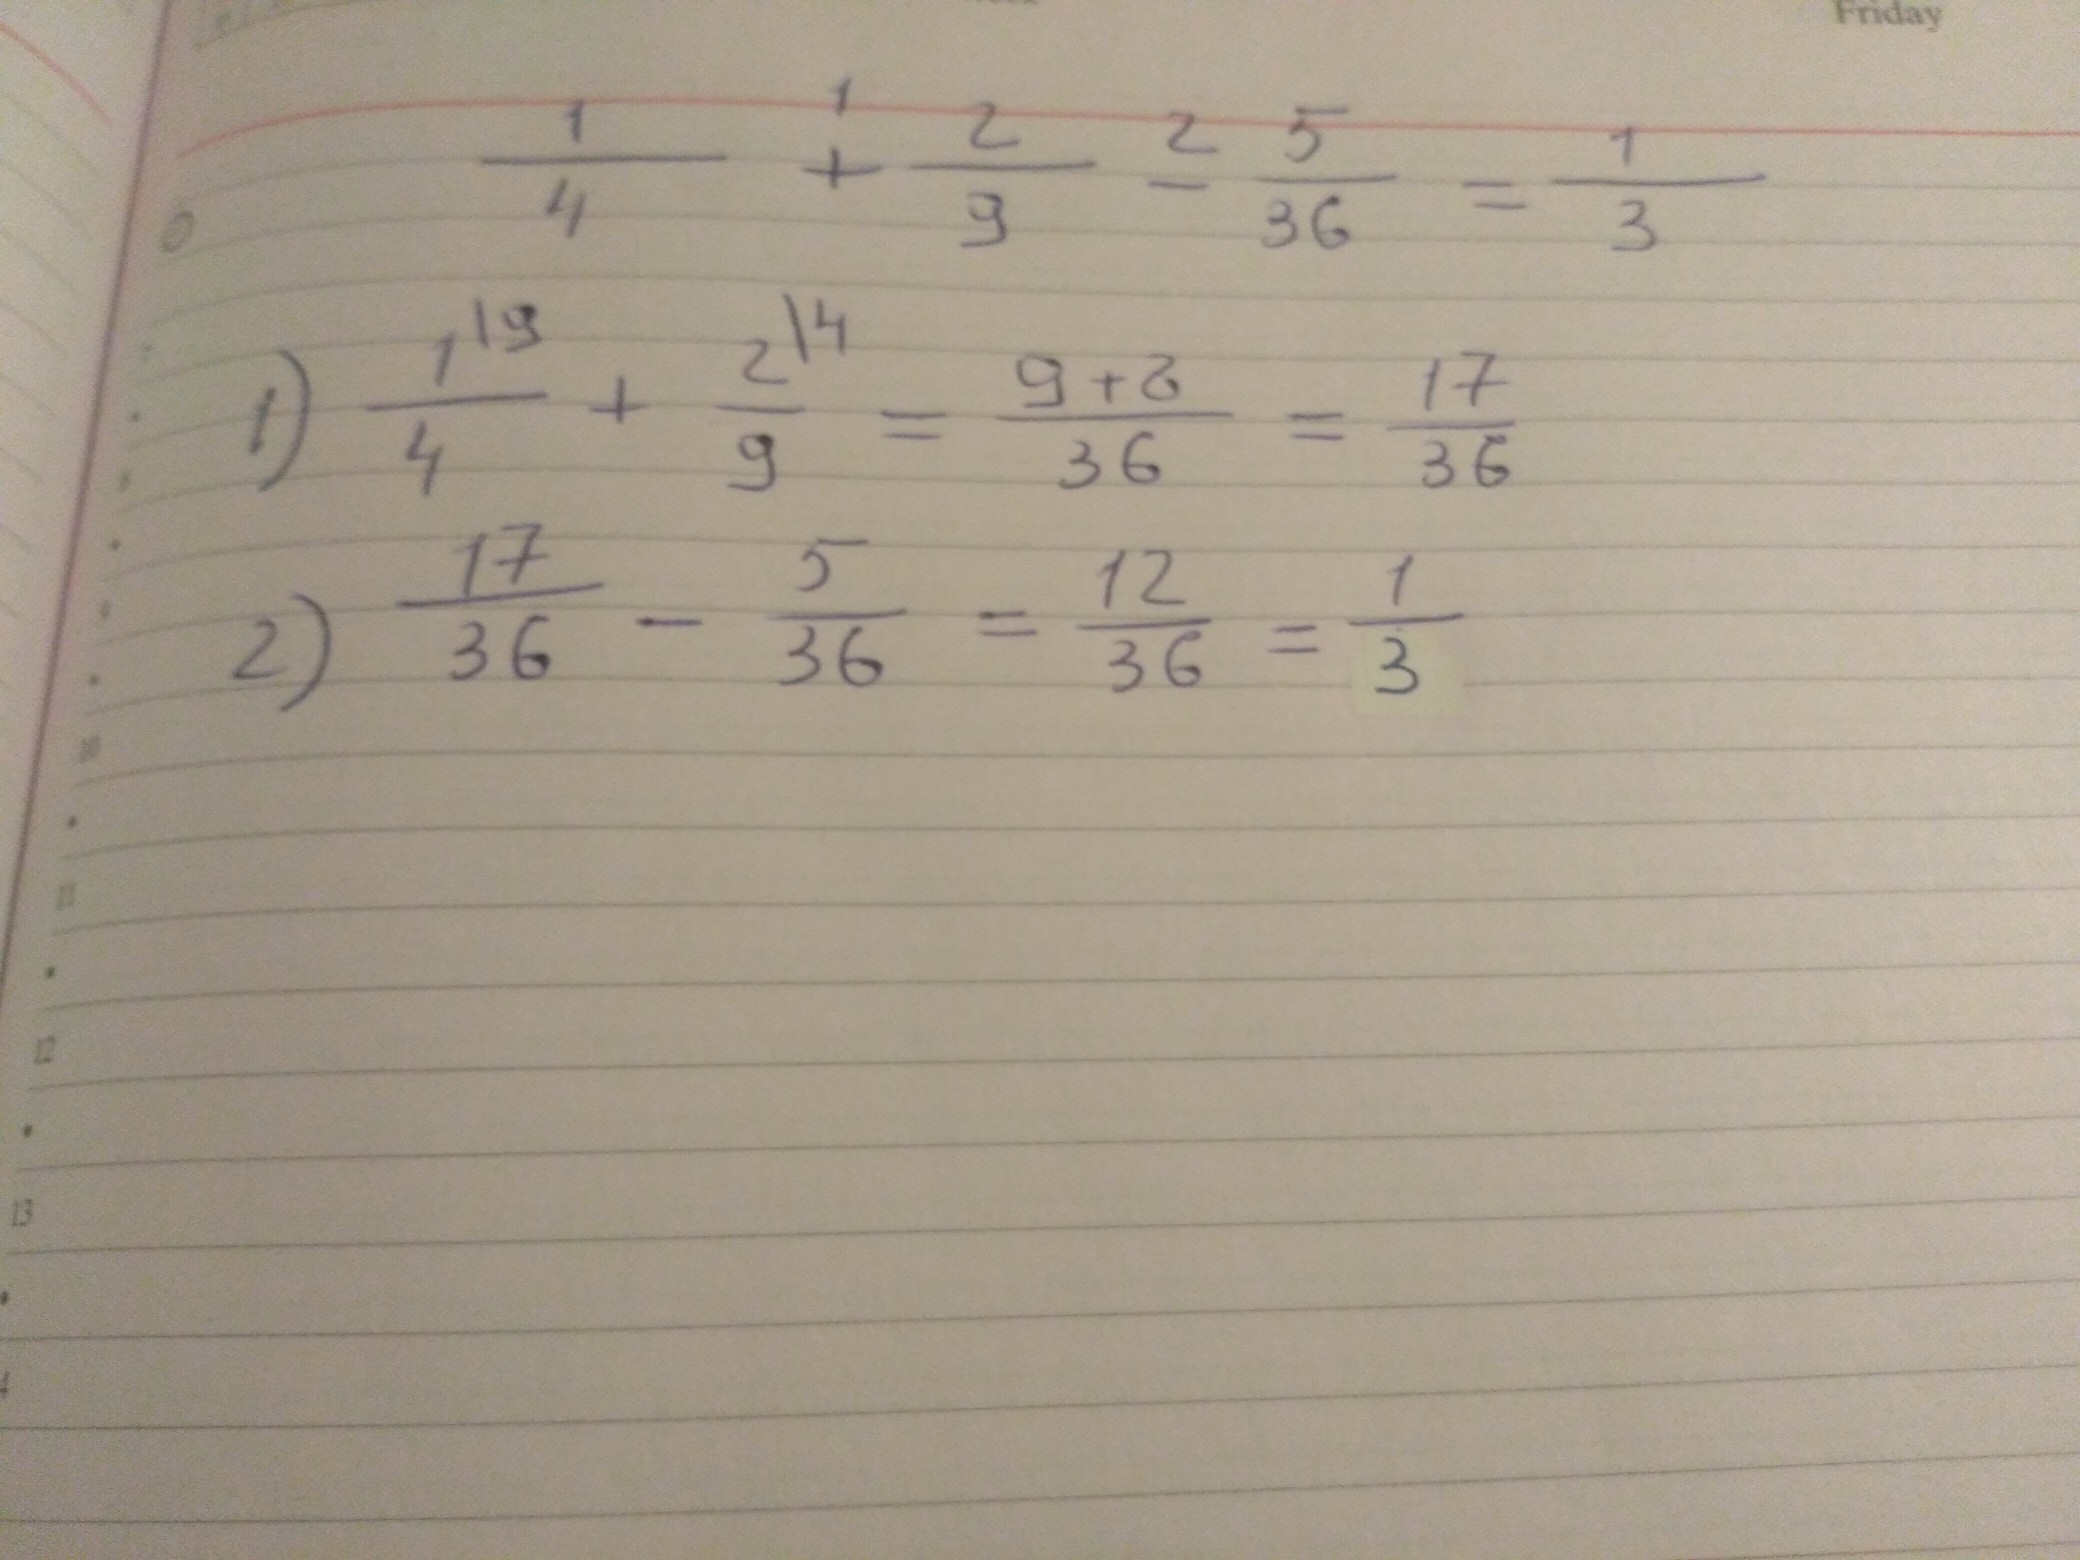 Friday
1/4 +¹ 2/9 -² 5/36 = 1/3
1) 1\9/4 + 2\4/9 = 9+8/36 = 17/36
2) 17/36 - 5/36 = 12/36 = 1/3
10
11
12
13